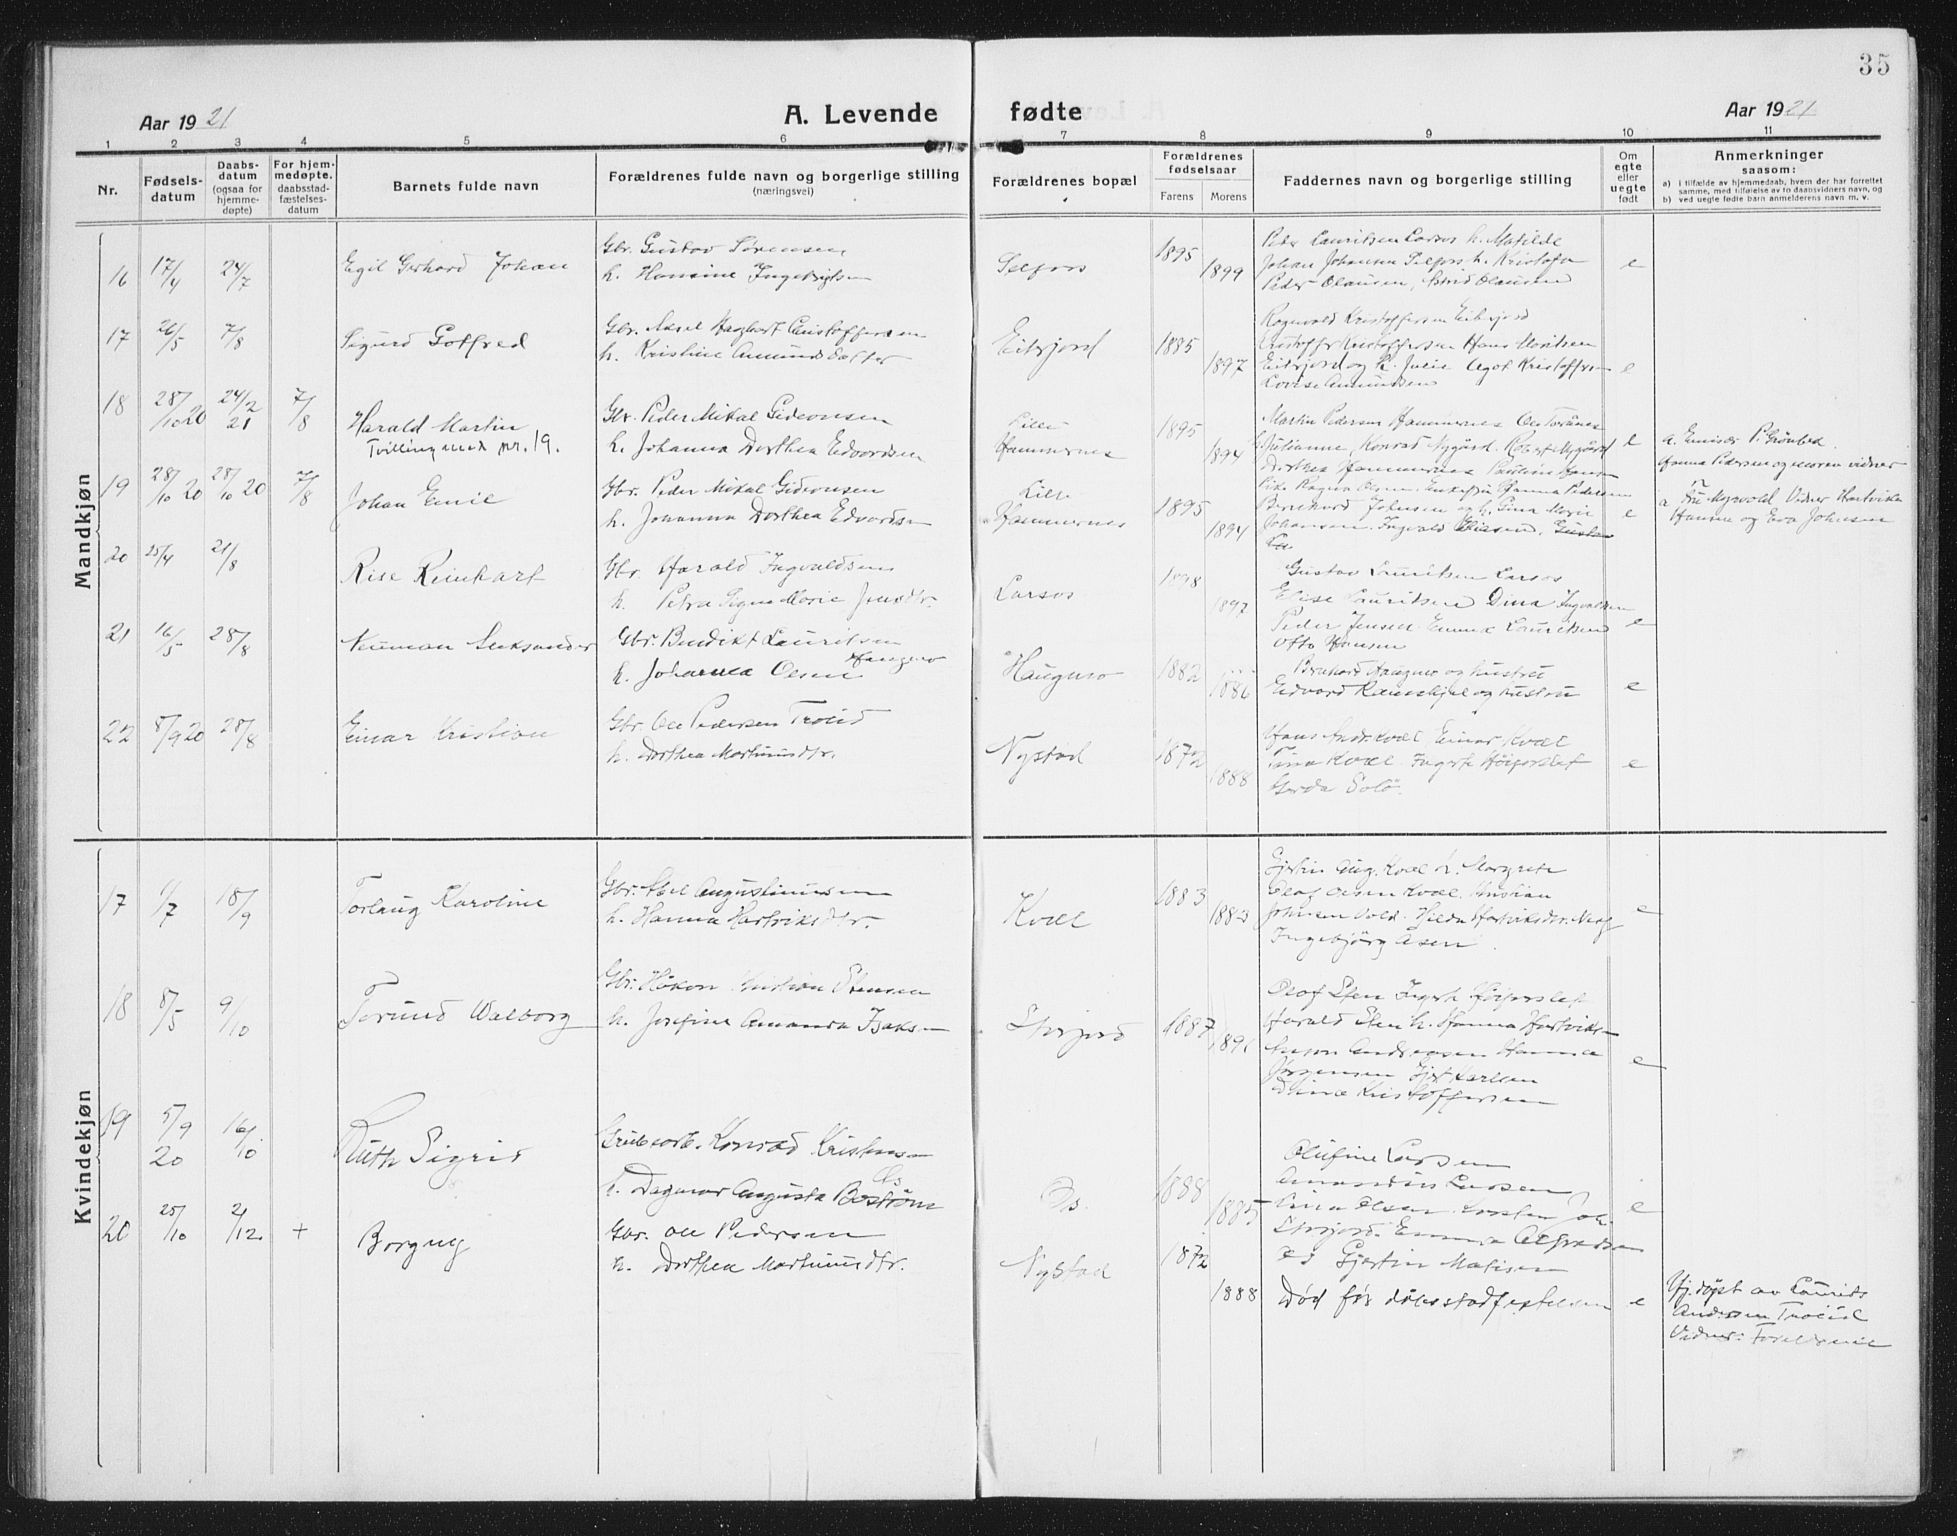 35
Aar 1921 A. Levende fødte Aar 1921
1 2 3 4 5 6 7 8 9 10 11
Nr.
Fødsels-
datum
Daabs-
datum
(ogsaa for
hjemme-
døpte)
For hjem-
medøpte.
daabsstad-
fæstelses-
datum
Barnets fulde navn
Forældrenes fulde navn og borgerlige stilling
(næringsvei)
Forældrenes bopæl
Forældrenes
fødselsaar
Farens Morens
Faddernes navn og borgerlige stilling
Om
egte
eller
uegte
født
Anmerkninger
saasom:
a) i tilfælde av hjemmedaab, hvem der har forrettet
samme, med tilføielse av to daabsvidners navn, og
b) ved uegte fødte barn anmelderens navn m. v.
Mandkjøn
16 17/4 24/7 Egil Gerhard Johan
Gbr. Gustav Sørensen
h. Hansine Ingebrigtsen
Selfors 1895 1899
Peder Lauritsen Larsos h. Matilde
Johan Johansen Selfors h. Kristofa
Peder Olausen, Astrid Olausen
e
17 26/5 7/8 Sigurd Gotfred
Gbr. Aksel Hagbart Kristoffersen
h. Kristine Amundsdatter
Eitrjord 1885 1897
Ragnvald Kristoffersen Eitrjord
Kristoffer Kristoffersen Hans Moritsen
Eitrjord og h. Julie Agot Kristoffersen
Lovise Amundsen
e
18 28/10 20 24/2 21 7/8 Harald Martin
Tvilling med nr. 19.
Gbr. Peder Mikal Gideonsen
h. Johanna Dorthea Edvardsen
Lille
Hammernes 1895 1894
Martin Pedersen Hammernes
Julianne, Konrad Nygård. Robert Nygård
Dorthea Hammernes
e
Hanna Pedersen og moren vidner
19 28/10 20 28/10 20 7/8 Johan Emil
Gbr. Peder Mikal Gideonsen
h. Johanna Dorthea Edvardsen
Lille
Hammernes 1895 1894
Ragna Olsen, Hanna Pedersen
Bernhard Johnsen og h. Gina Marie
Johansen Ingvald
e
a Fru Myrvold Vidner Hartvika
Hansen og Eva Johnsen
20 25/4 21/8 Rise Reinhart
Gbr. Harald Ingvaldsen
h. Petra Signe Marie Jensdtr.
Larsos 1898 1897
Gustav Lauritsen Larsos
Elise Lauritsen Dina Ingvaldsen
Peder Jensen Emma Lauritsen
Otto Hansen
e
21 16/5 28/8 Neuman Aleksander
Gbr. Bendikt Lauritsen
h. Johanna Olsen
Haugmo 1882 1886
Bernhard Haugmo og hustru
Edvard og hustru
e
22 8/9 20 28/8 Einar Kristian
Gbr. Ole Pedersen Trolid
h. Dorthea Martinusdtr.
Nystad 1872 1888
Hans Andr. Kvæl Einar Kvæl
Tina Kvæl. Ingrh Höigorslet
Gerda Solö.
e
Kvindekjøn
17 1/7 18/9 Torlaug Karoline
Gbr. Abel Augustinussen
h. Hanna Hartviksdtr.
Kvæl 1883 1883
Gjertin Aug. Kvæl h. Margrete
Olaf Olsen Kvæl. Kristian
Johnsen Vold. Hilda Hartviksdtr.
Ingebjörg Åsen
e
18 8/5 9/10 Torund Walborg
Gbr. Håkon Kristian Stensen
h. Josefine Amanda Isaksen
Storjord 1887 1891
Olaf Sten Ingrh Höigorslet
Harald Sten h. Hanna Hartviksen
Anton Andreasen Hanna
Jörgensen Gjert Karlsen
Kristoffersen
e
19 5/9 20 16/10 Ruth Sigrid
Grubearb. Konrad Kristensen
h. Dagmar Augusta Boström
Os 1888 1885
Olufine Larsen
Larsen
Olsen
Storjord. Emma Alfredsen
Gjertin Matisen
e
20 25/10 2/12 + Borgny
Gbr. Ole Pedersen
h. Dorthea Martinusdtr.
Nystad 1872 1888
Död før dåbsstadfestelsen
e
Hj. döpt av Laurids
Andersen Trolid
Vidner: Foreldrene